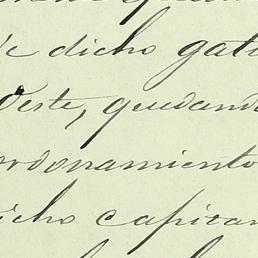 de dicho gat
Oeste, quedando
ordonamiento
icho capitan